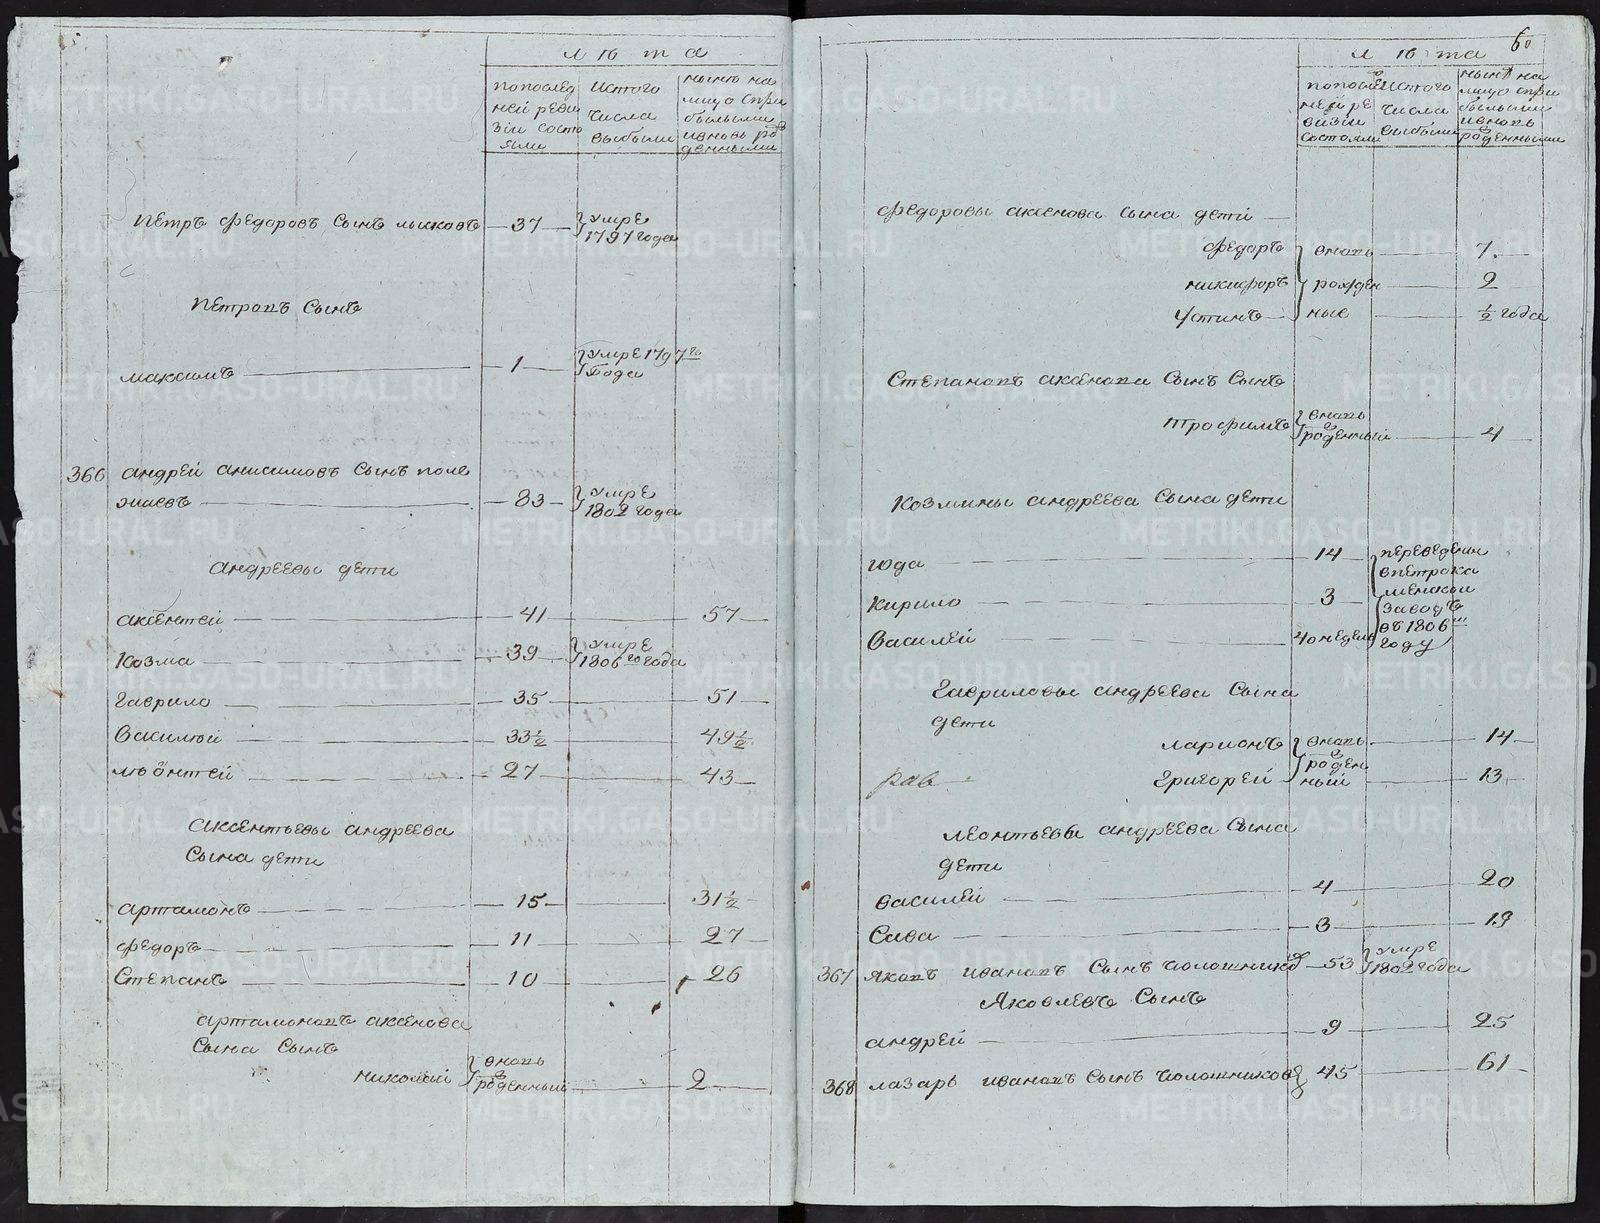 лѣта
попослед
ней реви
зіи состо
яли
истого
числа
выбыли
нынѣ на
лицо спри
былыми
ивновь ро
денными
Петръ Федоровъ сынъ лысковъ 37 умре
1797 года
Петровъ сынъ
максимъ 1 умре 1797 го
года
366 андрей анисимовъ сынъ поле
жаевъ 83 умре
1802 года
андреевы дети
аксентей 41 57
козма 39 умре
1806 го года
гаврило 35 51
василей 33 ½ 49 ½
леонтей 27 43
аксентьевы андреева
сына дети
артамонъ 15 31 ½
федоръ 11 27
степанъ 10 26
артамоновъ аксенова
сына сынъ
николай вновь
роденный 2
60
лѣта
попослед
ней ре
визіи
состояли
истого
числа
выбыли
нынѣ на
лицо спри
былыми
ивновь
роденными
федоровы аксенова сына дети
федоръ вновь 7
никифоръ рожден 2
устинъ ные ½ года
степановъ аксенова сынъ сынъ
трофимъ вновь
роденный 4
козмины андреева сына дети
юда 14 переведены
впетрока
кирило 3 менской
заводъ
василей 40 недель въ 1806 м
году
гавриловы андреева сына
дети
ларионъ вновь 14
роден
рав григорей ный 13
леонтьевы андреева сына
дети
василей 4 20
сава 3 19
367 яковъ ивановъ сынъ колошниковъ 53 умре
1802 года
яковлевъ сынъ
андрей 9 25
368 лазарь ивановъ сынъ колошниковъ 45 61